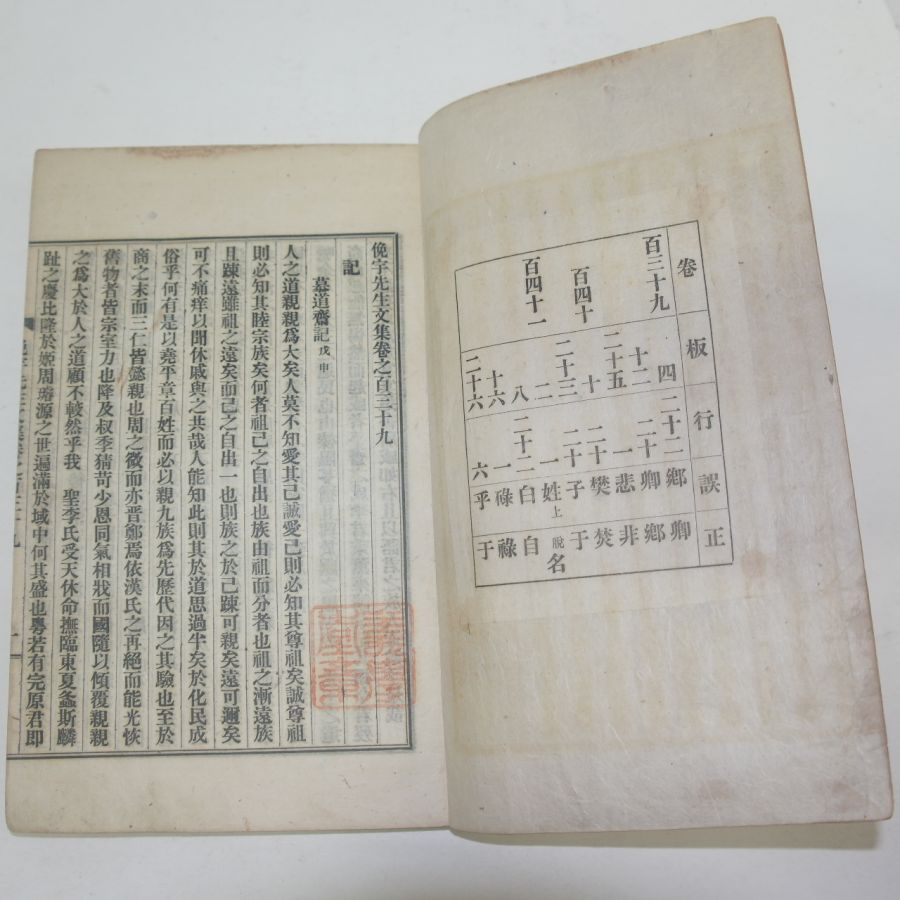 卷 板 行 誤 正
百三十九 四 二十二 鄉 卿
十二 二十 卿 鄉
二十五 一 悲 非
百四十 十 二十 樊 焚
二十三 二十 子 于
二 一 姓上 脫名
百四十一 八 二十二 白 自
十六 一 碌 祿
二十六 六 乎 于
俛宇先生文集卷之百三十九
記
慕道齋記 戊申
人之道親親爲大矣人莫不知愛其己誠愛己則必知其尊祖矣誠尊祖
則必知其睦宗族矣何者祖己之自出也族由祖而分者也祖之漸遠族
且踈遠雖祖之遠矣而己之自出一也則族之於己踈可親矣遠可邇矣
可不痛痒以閒休戚與之共哉人能知此則其於道思過半矣於化民成
俗乎何有是以堯平章百姓而必以親九族爲先歷代因之其驗也至於
商之末而三仁皆懿親也周之微而亦晋鄭焉依漢氏之再絕而能光恢
舊物者皆宗室力也降及叔季猜苛少恩同氣相戕而國隨以傾覆親親
之爲大於人之道顧不較然乎我 聖李氏受天休命撫臨東夏螽斯麟
趾之慶比隆於姬周璿源之世遍滿於域中何其盛也粤若有完原君即